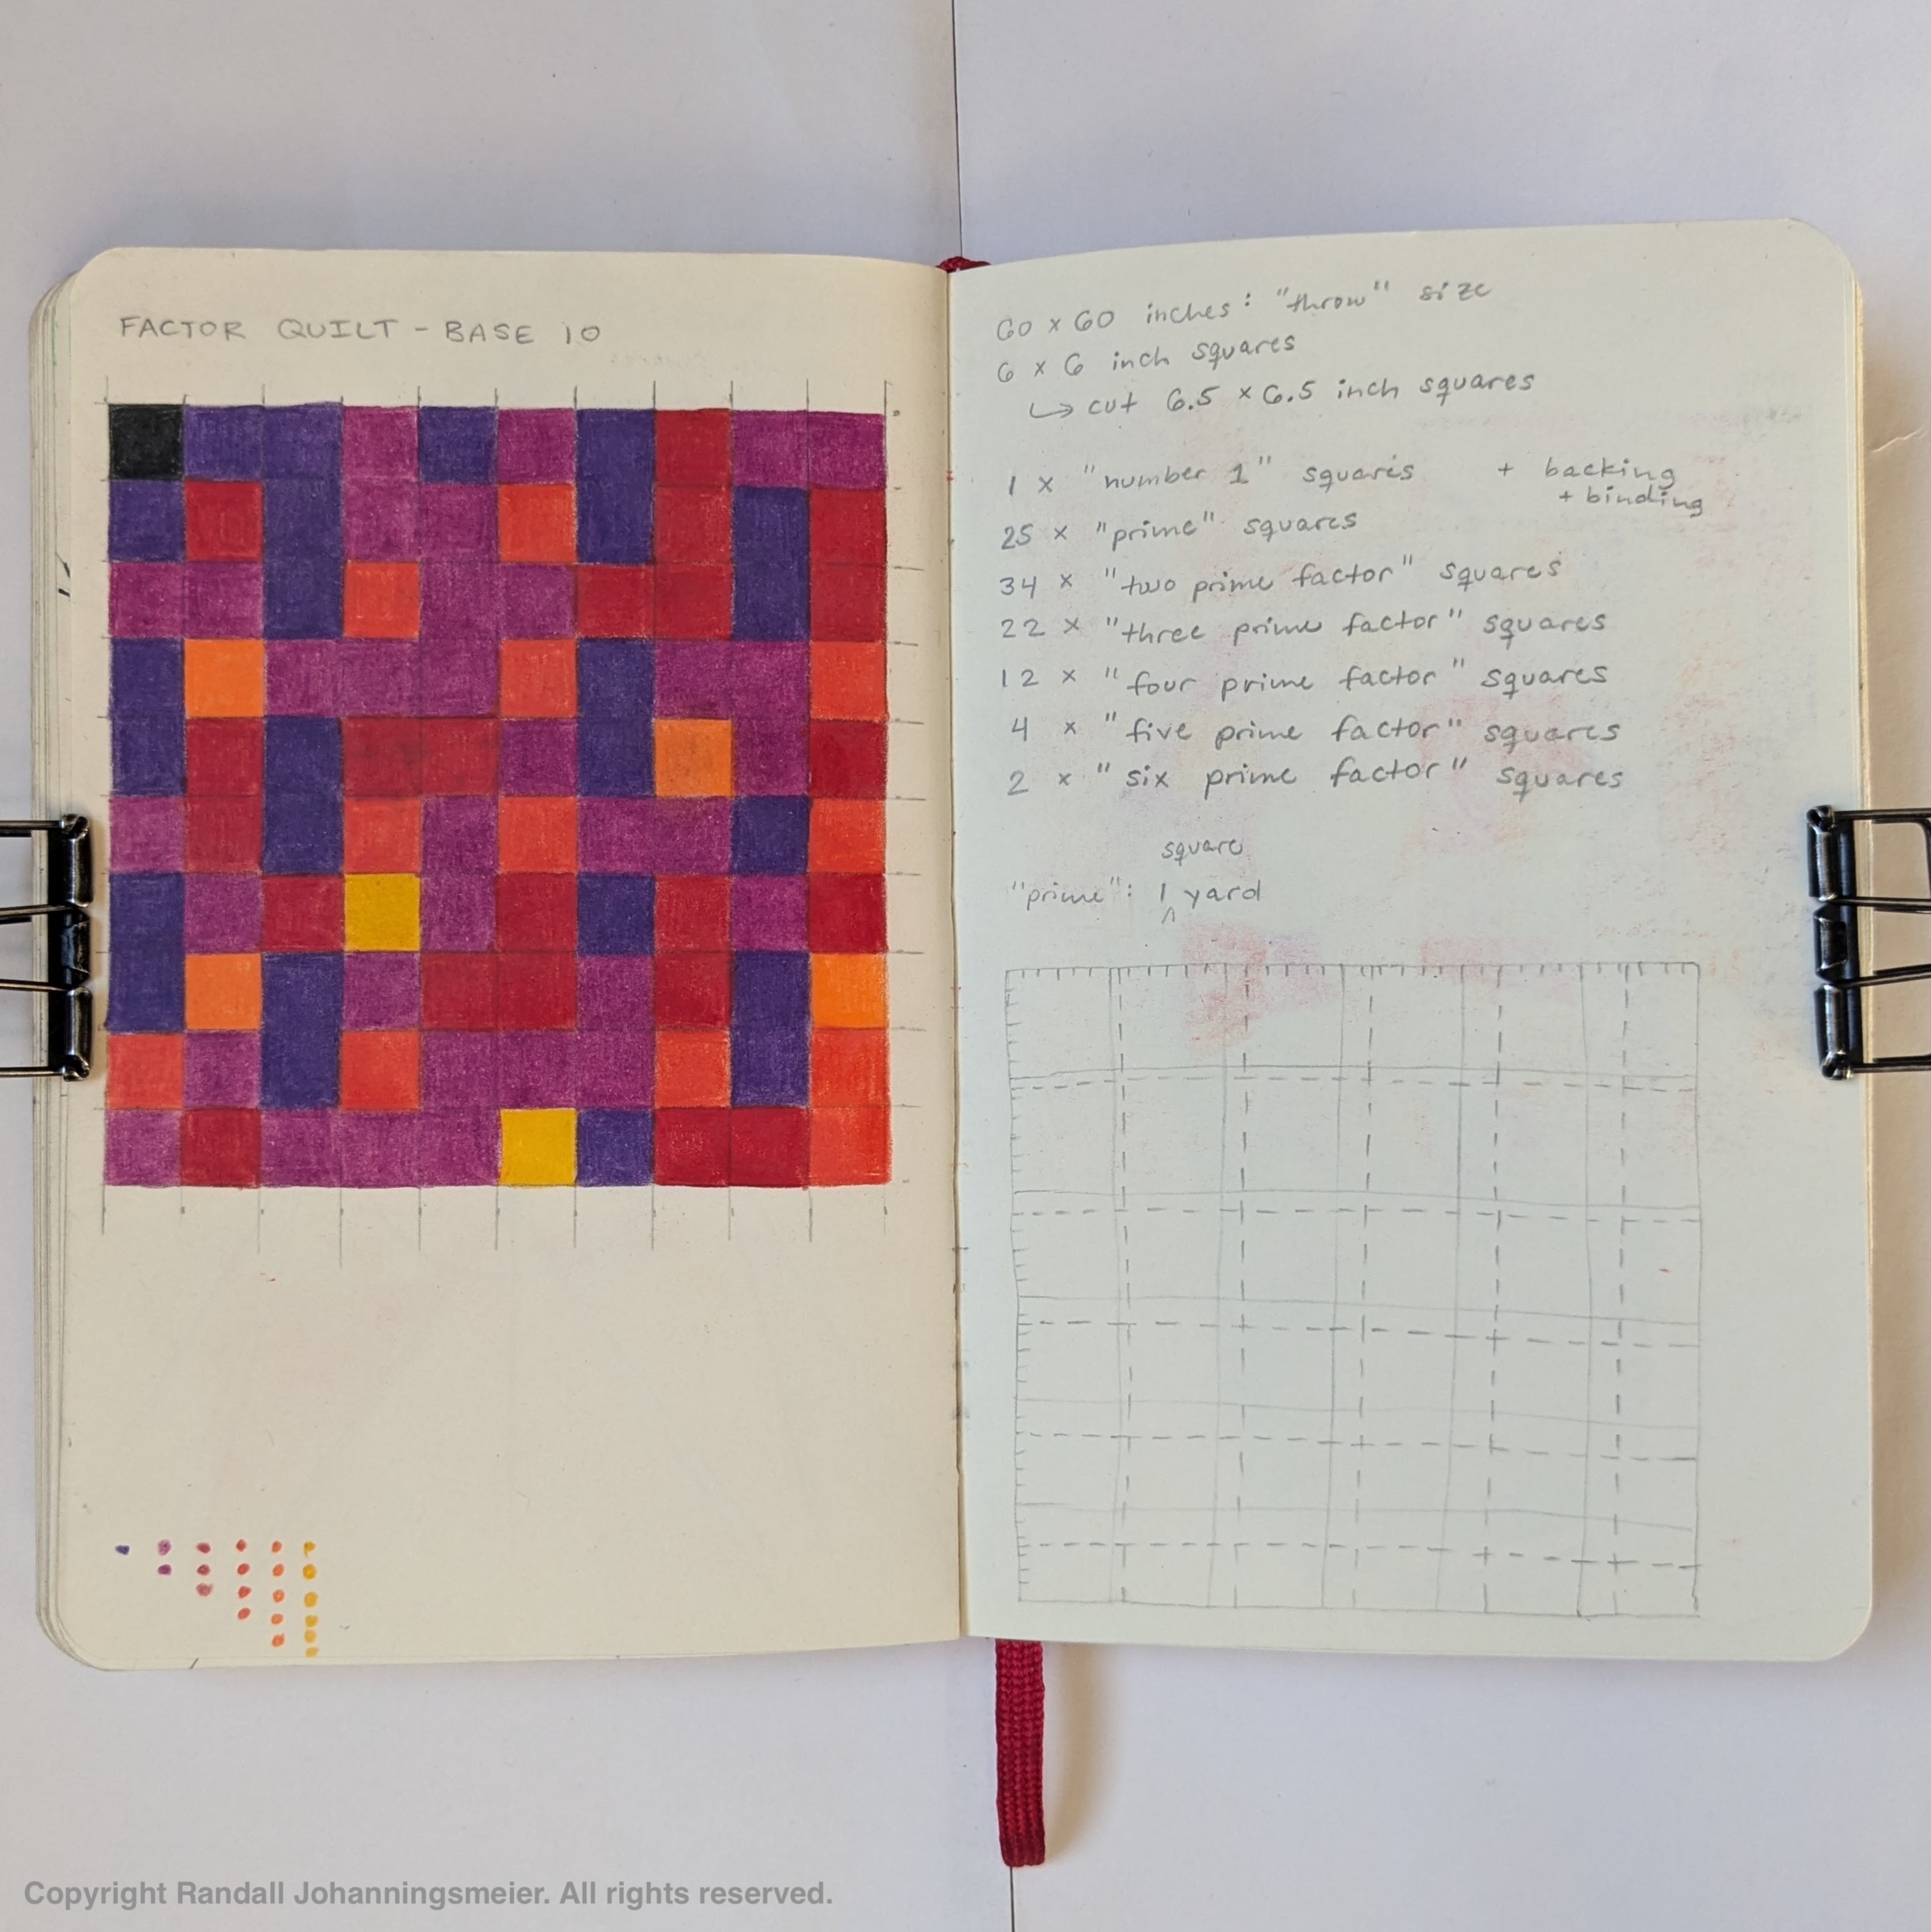 FACTOR QUILT - BASE 10
60 x 60 inches: "throw" size
6 x 6 inch squares
↳ cut 6.5 x 6.5 inch squares
1 x "number 1" squares
+ backing
+ binding
25 x "prime" squares
34 x "two prime factor" squares
22 x "three prime factor" squares
12 x "four prime factor" squares
4 x "five prime factor" squares
2 x "six prime factor" squares
square
"prime": 1 ^ yard
Copyright Randall Johanningsmeier. All rights reserved.